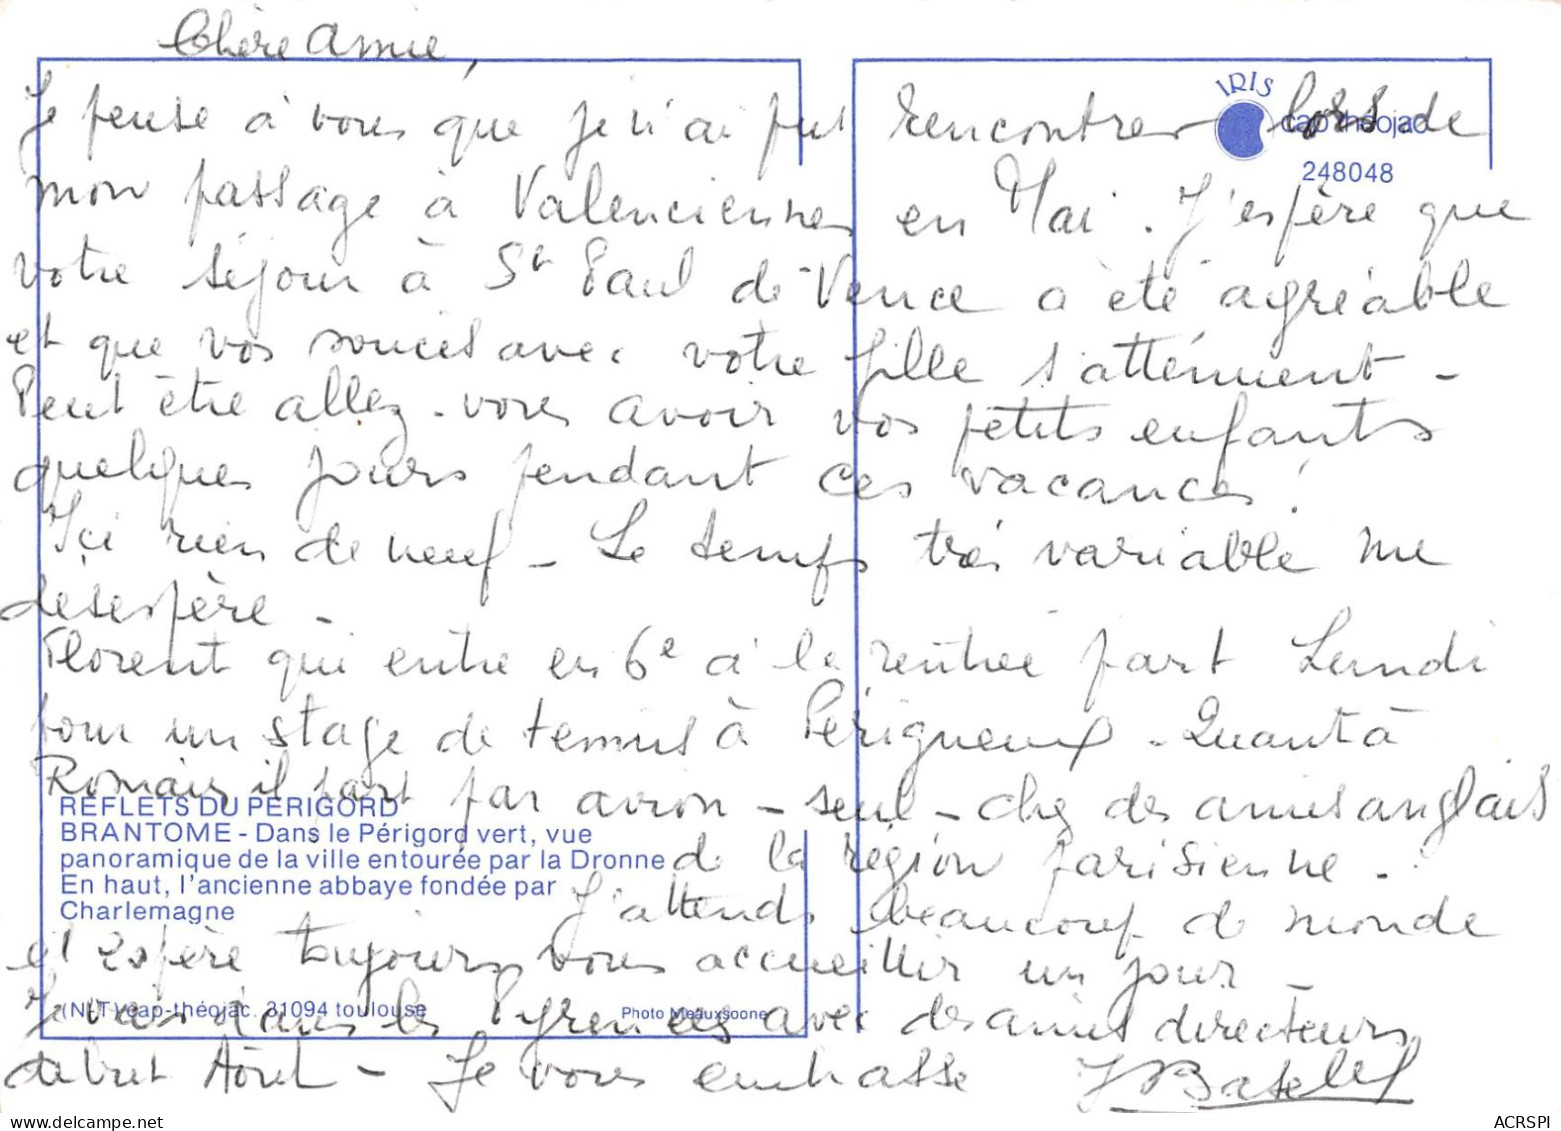 Chère Amie,
Je pense à vous que je n'ai put rencontrer lors de
mon passage à Valenciennes en Mai. J'espère que
votre séjour à St Paul de Vence a été agréable
et que vos soucis avec votre fille s'atténuent -
Peut être allez-vous avoir vos petits enfants
quelques jours pendant ces vacances!
Ici rien de neuf - Le temps très variable me
desespère -
Florent qui entre en 6e à la rentrée part Lundi
pour un stage de tennis à Périgueux - Quant à
Romain il part par avion - seul - chez des amis anglais
de la région parisienne.
J'attends beaucoup de monde
et espère toujours vous accueillir un jour -
Je vais dans les Pyrenées avec des amis directeurs
début Août - Je vous embrasse J Batelef
IRIS
cap-théojac
248048
REFLETS DU PERIGORD
BRANTOME - Dans le Périgord vert, vue
panoramique de la ville entourée par la Dronne
En haut, l'ancienne abbaye fondée par
Charlemagne
(NLT) cap-théojac. 31094 toulouse
Photo Meauxsoone
ACRSPI